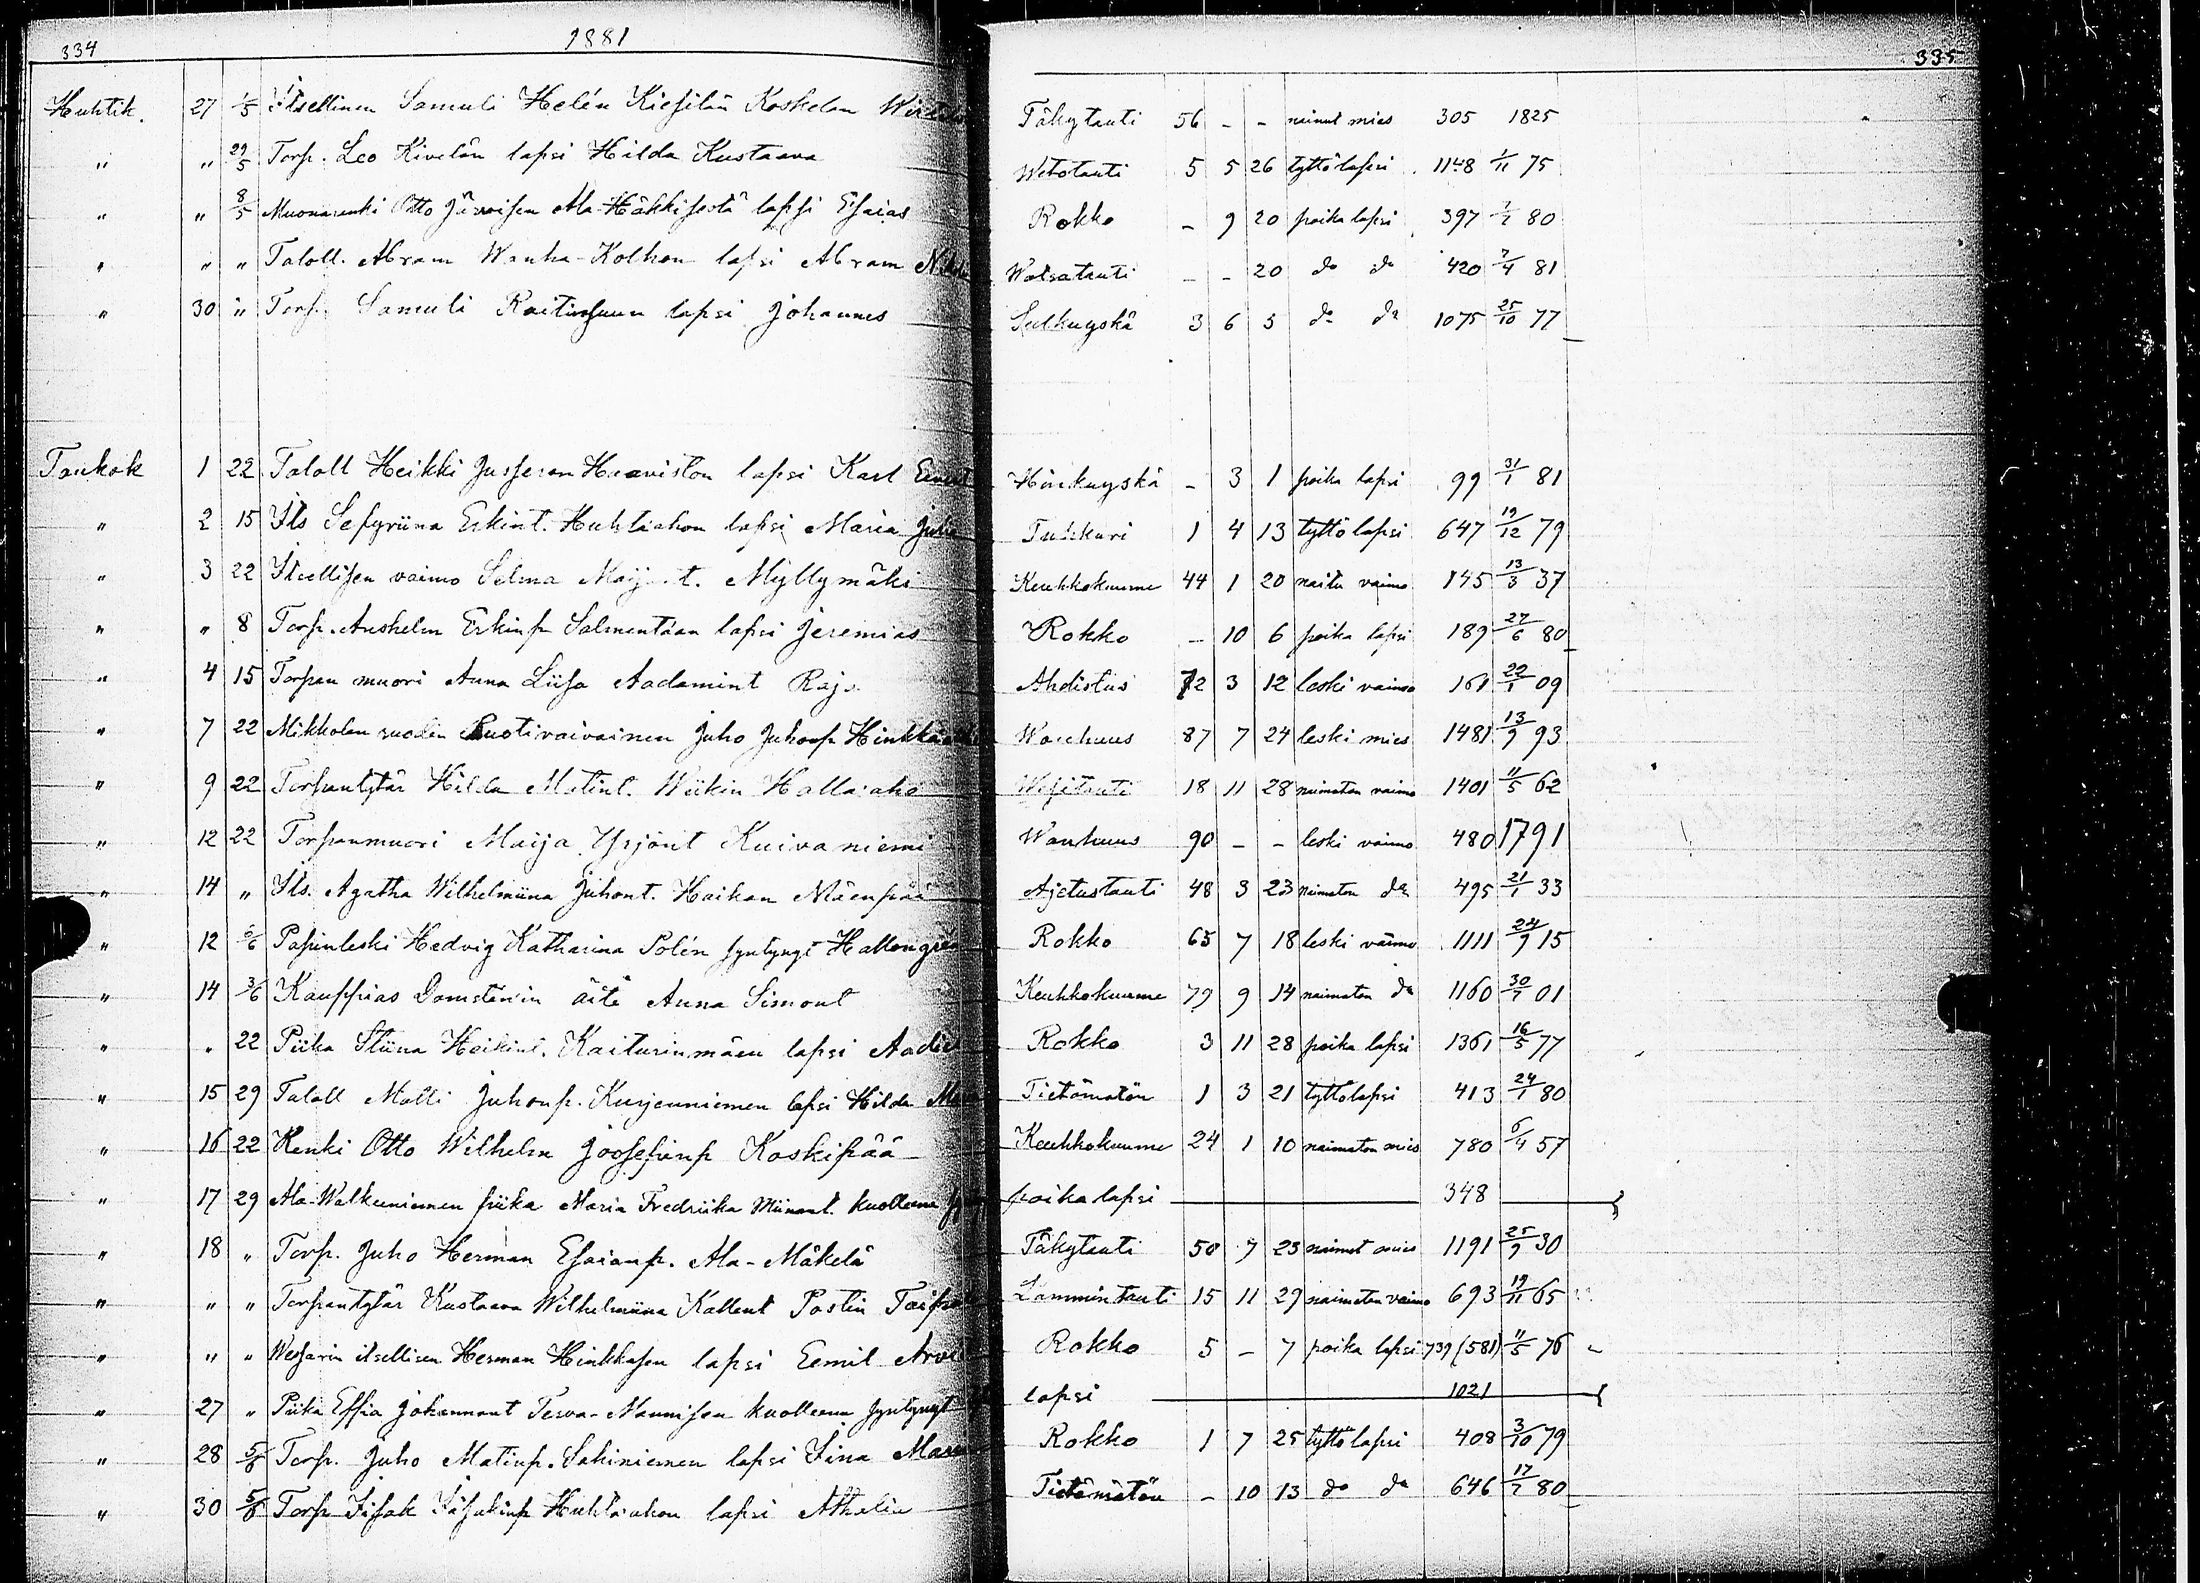 334 1881 335
Huhtik. 27 1/5 Itsellinen Samuli Helén Kiesilän Koskelan Tähytauti 56 - - nainut mies 305 1825
" " 29/5 Torp. Leo Kivelän lapsi Hilda Kustaava Wetotauti 5 5 26 tyttö lapsi 1148 1/11 75
" " 8/5 Muonarenki Otto Järvisen Ala-Häkkisestä lapsi Esaias Rokko - 9 20 poika lapsi 397 80
" " " Taloll. Abram Wanha-Kolhon lapsi Abram Watsatauti - - 20 do do 420 7/4 81
" 30 " Torp. Samuli lapsi Johannes 3 6 5 do do 1075 25/10 77
Toukok 1 22 Taloll Heikki Jusseran Haaviston lapsi Karl Hinkuyskä - 3 1 poika lapsi 99 31/1 81
" 2 15 Its Sefyriina Erkint. Huhtiahon lapsi Maria Tuhkuri 1 4 13 tyttö lapsi 647 19/12 79
" 3 22 Itsellisen vaimo Selma Myllymäki Keuhkokuume 44 1 20 naitu vaimo 145 13/3 37
" " 8 Torp. Anshelm Erkinp Salmentaan lapsi Jeremias Rokko - 10 6 poika lapsi 189 27/6 80
" 4 15 Torpan muori Anna Liisa Aadamint Ahdistus 72 3 12 leski vaimo 161 22/1 09
" 7 22 Mikkolan ruodin Ruotivaivainen Juho Juhonp Wanhuus 87 7 24 leski mies 1481 13/9 93
" 9 22 Torpantytär Hilda Matint. Wiikin Hallaaho Wesitauti 18 11 28 naimaton vaimo 1401 11/5 62
" 12 22 Torpanmuori Maija Yrjönt Kuivaniemi Wanhuus 90 - - leski vaimo 480 1791
" 14 " Its. Agatha Wilhelmiina Juhont. Haikan Mäenpää Ajetustauti 48 3 23 naimaton do 495 21/1 33
" 12 5/6 Papinleski Hedvig Katharina Polén syntynyt Rokko 65 7 18 leski vaimo 1111 24/9 15
" 14 3/6 Kauppias Domsténin äiti Anna Simont Keuhkokuume 79 9 14 naimaton do 1160 30/7 01
" " 22 Piika Stiina Heikint. Kaiturinmäen lapsi Rokko 3 11 28 poika lapsi 1361 16/5 77
" 15 29 Taloll Matti Juhonp. Kurjenniemen lapsi Hilda Tietämätön 1 3 21 tyttölapsi 413 24/1 80
" 16 22 Renki Otto Wilhelm Joosepinp Koskipää Keuhkokuume 24 1 10 naimaton mies 780 6/4 57
" 17 29 Ala-Walkeeniemen piika Maria Fredriika kuolleena poika lapsi 348
" 18 " Torp. Juho Herman Esaianp. Ala-Mäkelä Tähytauti 50 7 23 nainut mies 1191 25/9 30
" " " Torpantytär Kustaava Wilhelmiina Kallent Postin Lammintauti 15 11 29 naimaton vaimo 693 19/11 65
" " " itsellisen Herman Hinkkasen lapsi Eemil Rokko 5 - 7 poika lapsi 739 (581) 11/5 76
" 27 " Piika Effia Johannant Terva-Mannisen kuolleena syntynyt lapsi 1021
" 28 5/6 Torp. Juho Matinp. Sahiniemen lapsi Rokko 1 7 25 tyttö lapsi 408 3/10 79
" 30 5/6 Torp Iisak Iisakinp Huhtiahon lapsi Tietämätön - 10 13 do do 646 17/7 80